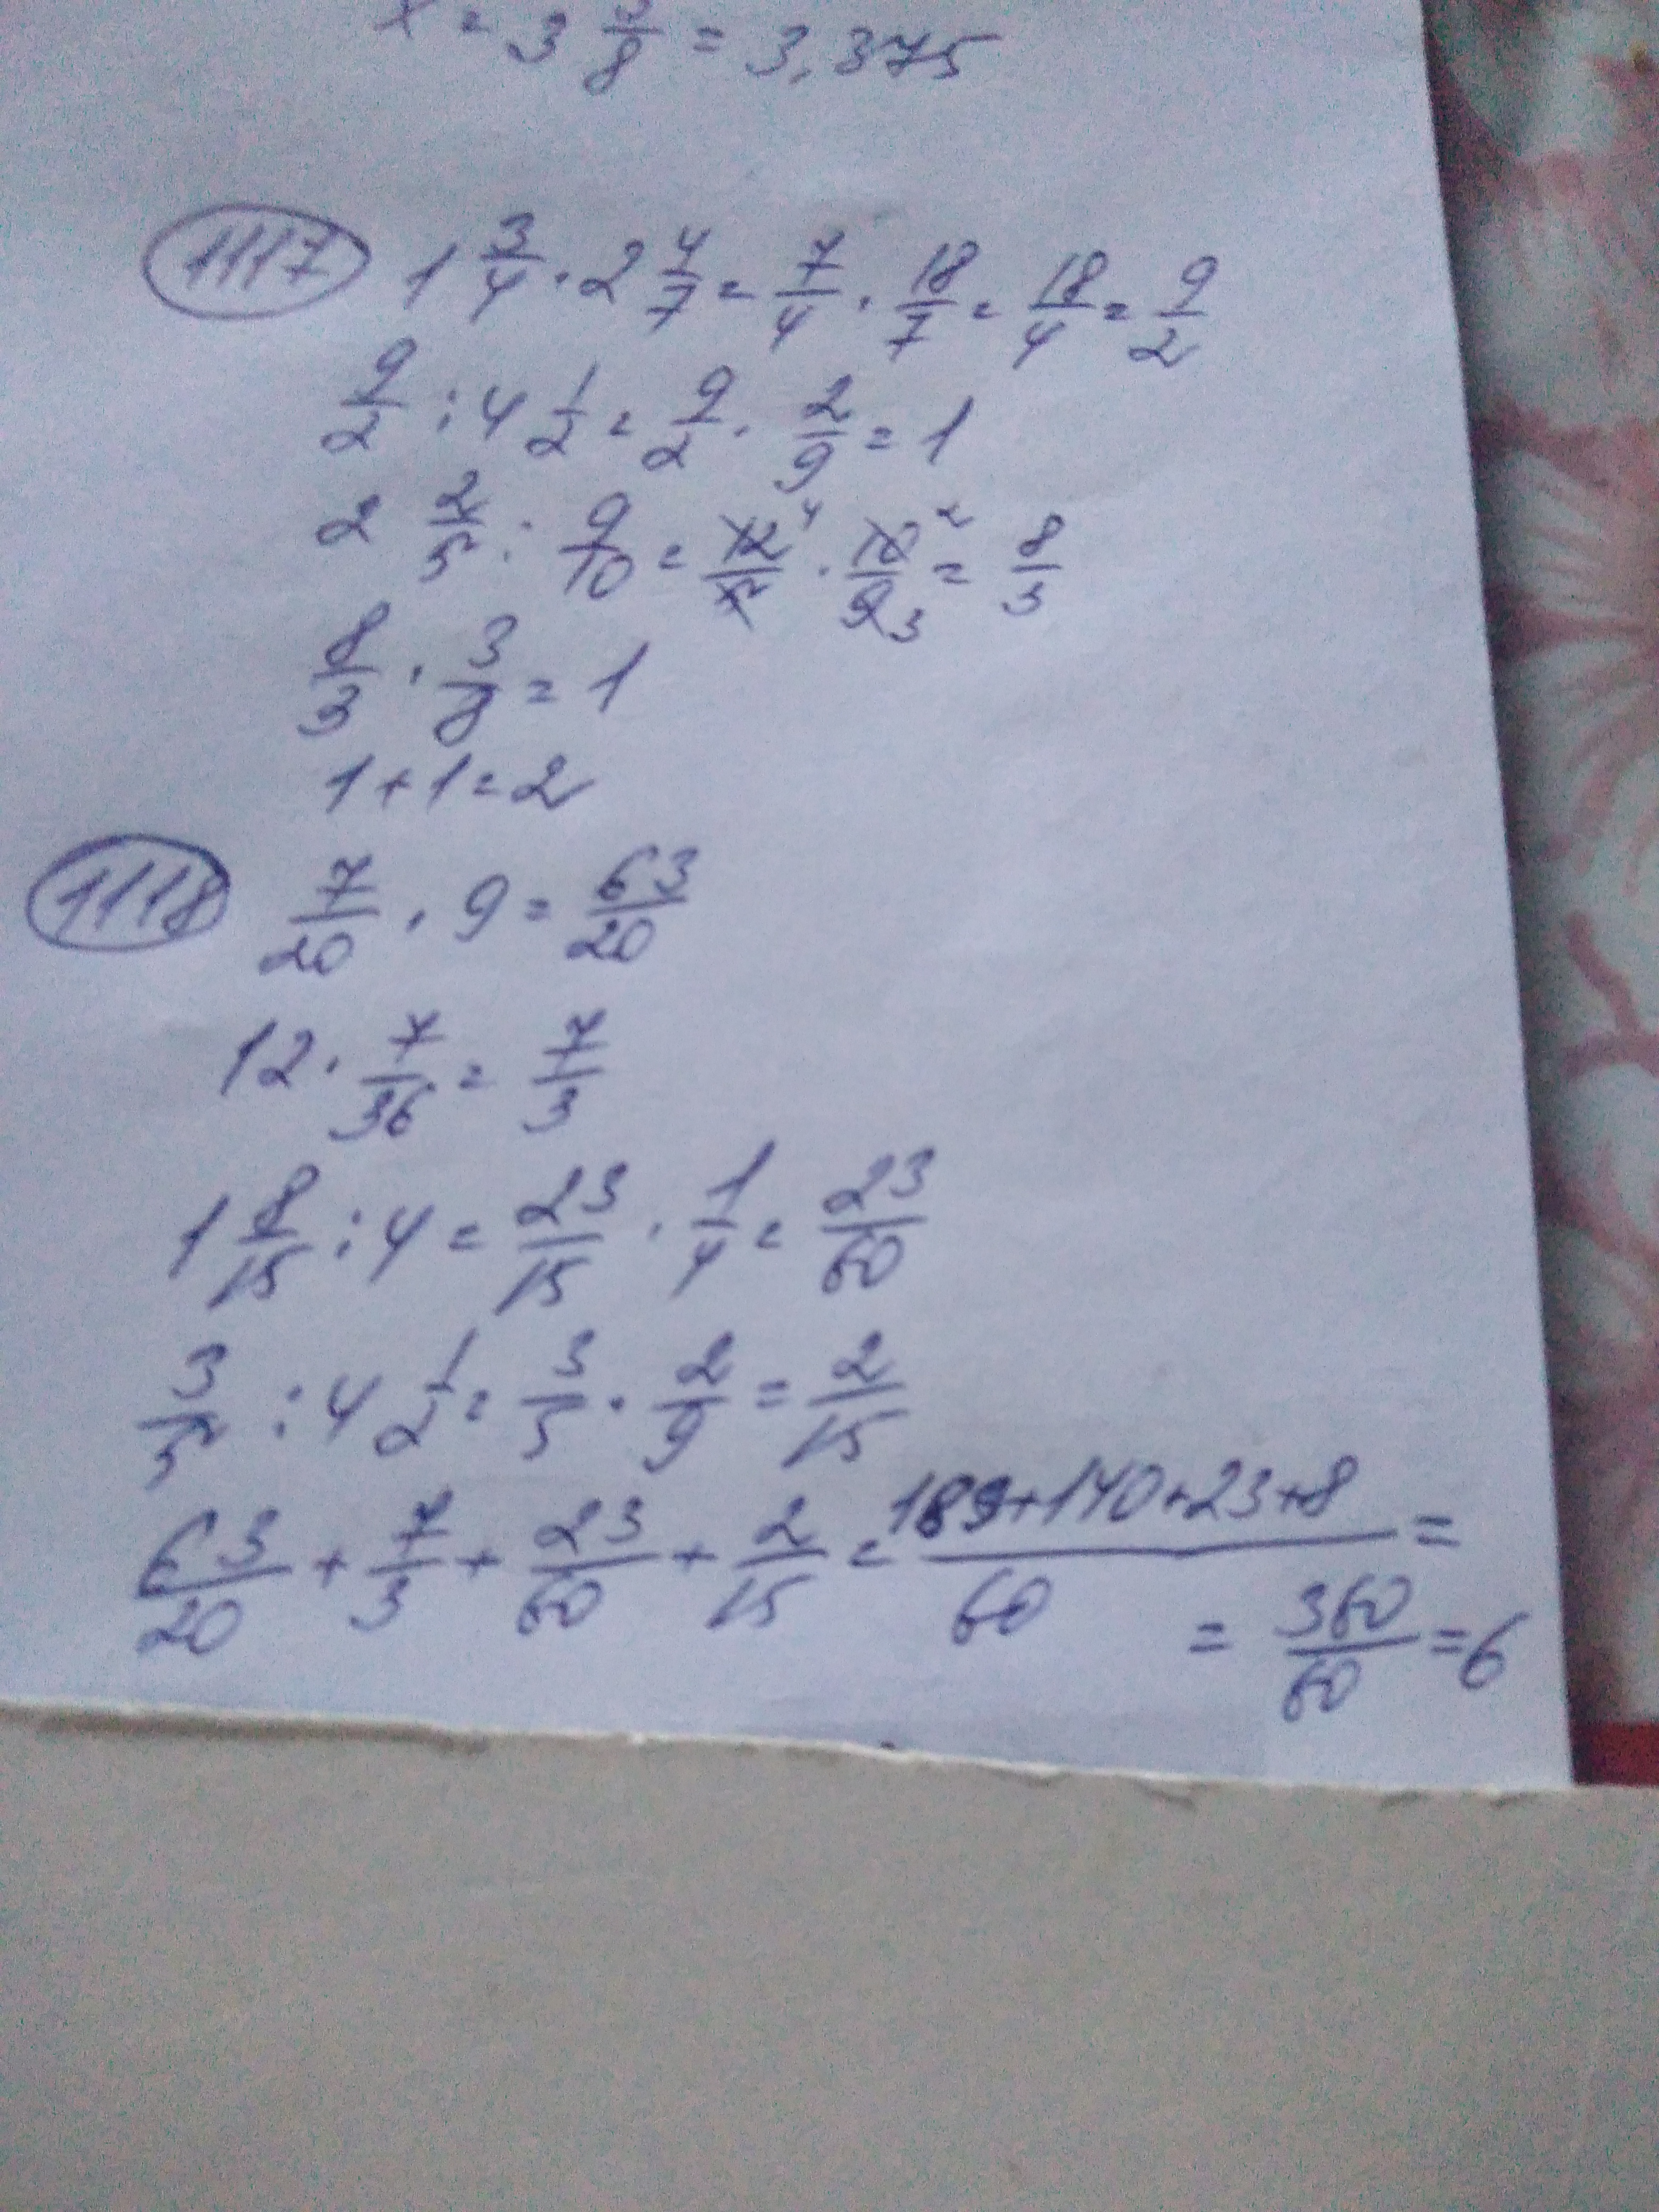 x = 3 3/8 = 3,375
1117 1 3/4 · 2 4/7 = 7/4 · 18/7 = 18/4 = 9/2
9/2 : 4 1/2 = 9/2 · 2/9 = 1
2 2/5 : 9/10 = 12/5 4 · 10/9 2 3 = 8/3
8/3 · 3/8 = 1
1 + 1 = 2
1118 7/20 · 9 = 63/20
12 · 7/36 = 7/3
1 8/15 : 4 = 23/15 · 1/4 = 23/60
3/5 : 4 1/2 = 3/5 · 2/9 = 2/15
63/20 + 7/3 + 23/60 + 2/15 = 189+140+23+8/60 =
= 360/60 = 6